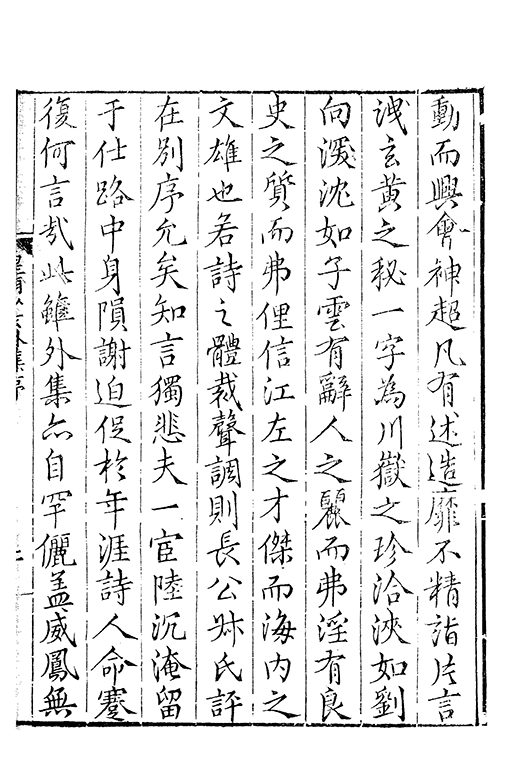 動而興會神超凡有述造靡不精詣片言
洩玄黃之秘一字為川嶽之珍洽浹如劉
向深沈如子雲有辭人之麗而弗淫有良
史之質而弗俚信江左之才傑而海內之
文雄也若詩之體裁聲調則長公叔氏評
在別序允矣知言獨悲夫一宦陸沉淹留
于仕路中身隕謝迫促於年涯詩人命蹇
復何言哉此雖外集亦自罕儷盖威鳳無
外集序